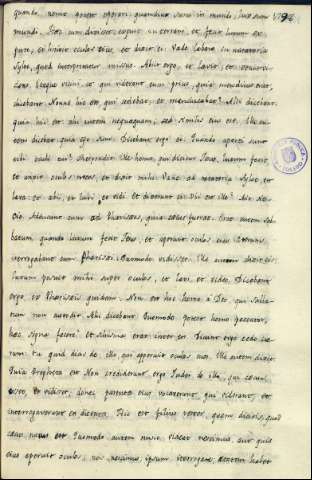 quando nemo potest operari, quamdiu sum in mundo, lux sum 94
mundi. Hec cum dixisset, expuit in terram, et fecit lutum ex
sputo, et linivit oculos eius, et dixit ei. Vade labare in natatoria
Syloe, quod interpretatur missus. Abiit ergo, et lavit, et venit vi-
dens. Itaque vicini, et qui viderant eum prius, quia mendicus erat,
dicebant. Nonne hic est, qui sedebat, et mendicabat? Alii dicebant
quia hic est. Alii autem nequaquam, sed similis eius est. Ille au-
tem dicebat quia ego sum. Dicebant ergo ei. Quomodo aperti sunt
tibi oculi tui? Respondit. Ille homo, qui dicitur Iesus, lutum fecit,
et unxit oculos meos, et dixit mihi. Vade ad natatoria Syloe, et
lava. et abii, et lavi, et vidi. Et dixerunt ei. Ubi est ille? Ait. Nes-
cio. Adducunt eum ad Phariseos, qui cecus fuerat. Erat autem Sab-
batum, quando lutum fecit Iesus, et aperuit oculos eius. Iterum
interrogabant eum Pharisei. Quomodo vidisset. Ille autem dixit eis,
lutum posuit mihi super oculos, et lavi, et video. Dicebant
ergo ex Phariseis quidam. Non est hic homo à Deo, qui Sabba-
tum non custodit. Alii dicebant. Quomodo potest homo peccator,
hec signa facere? et schisma erat inter eos. Dicunt ergo ceco ite-
rum. tu quid dicis de illo, qui apperuit oculos tuos. Ille autem dixit.
Quia Propheta est. Non crediderunt ergo Iudei de illo, quia cecus
esset, et vidisset, donec parentes eius vocaverunt, qui viderant, et
interrogaverunt eos dicentes. Hic est filius vester, quem dicitis, quod
cecus natus est. Quomodo autem nunc videat nescimus, aut quis
eius aperuit oculos, nos nescimus, ipsum interrogate, etatem habet